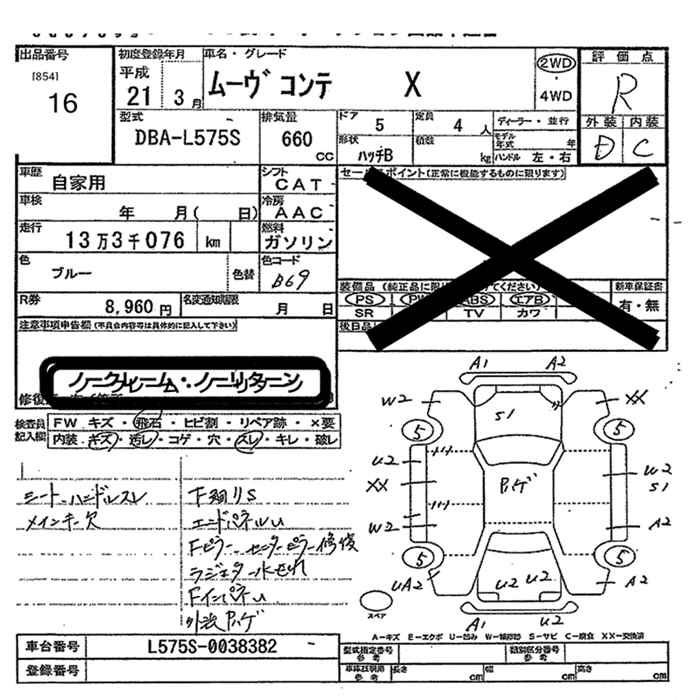 出品番号 初度登録年月 車名・グレード 評価点
[854] 平成 ムーヴ コンテ X 2WD R
16 21 3月 4WD
外装 内装
型式 排気量 ドア 5 定員 4 人 ディーラー・並行
DBA-L575S 660 CC 形状 ハッチB 積数 kg モデル年式 年 ハンドル 左・右 D C
車歴 自家用 シフト CAT セールスポイント(正常に機能するものに限ります)
車検 年 月( 日) 冷房 AAC
走行 13万3千076 km 燃料 ガソリン
色 ブルー 色替 色コード B69 装備品 新車保証書
PS ABS エアB 有・無
SR TV カワ
R券 8,960円 名変通知期限 月 日
注意事項申告欄(不具合内容等は具体的に記入して下さい)
ノークレーム・ノーリターン
検査員記入欄 FW キズ・飛石・ヒビ割・リペア跡・×要
内装・キズ・汚レ・コゲ・穴・スレ・キレ・破レ
シートハンドルスレ 下廻りS
メインキー欠 エンドパネルU
Fピラー センターピラー修復
ラジエター水もれ
FインパネU
外装ハゲ
A1 A2
W2 S1 XX
5 5
U2 W2
XX ハゲ S1
W2 A2
5 5
UA2 U2 U2 A2
スペア A1 U2
A-キズ E-エクボ U-凹み W-補修跡 S-サビ C-腐食 XX-交換済
車台番号 L575S-0038382 型式指定番号 参考 類別区分番号 参考
登録番号 車体証明用 参考 長さ cm 幅 cm 高さ cm